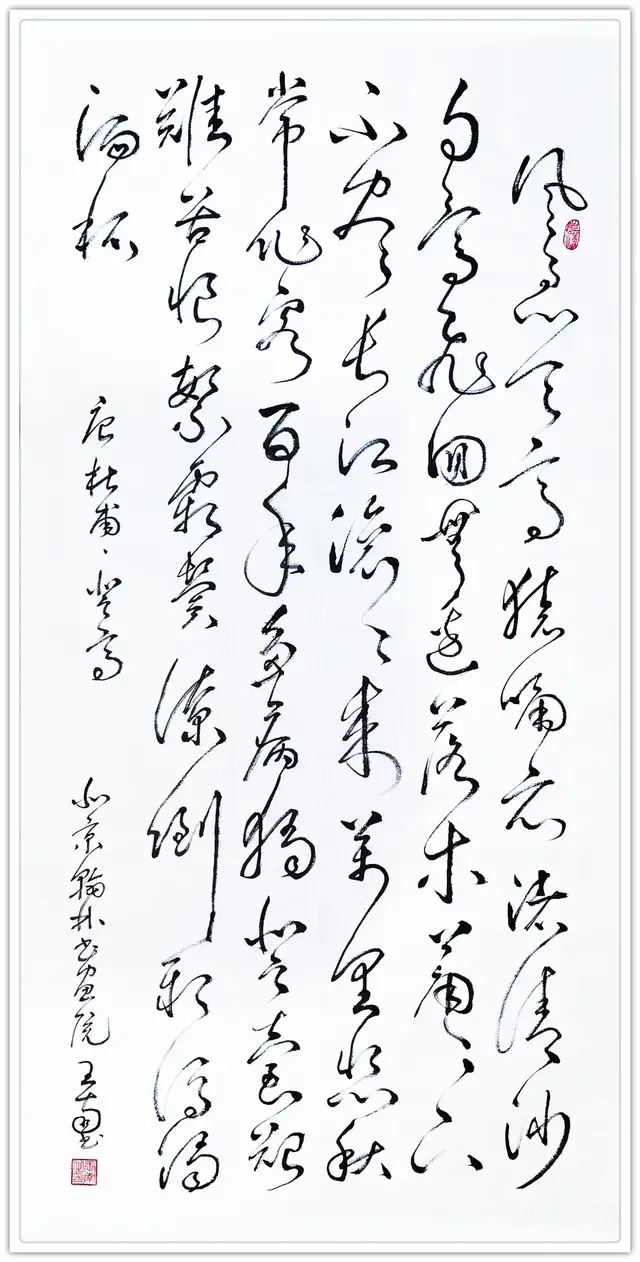 風急天高猿嘯哀渚清沙
白鳥飛回無邊落木蕭〻下
不盡長江滾〻來萬里悲秋
常作客百年多病獨登臺艱
難苦恨繁霜鬢潦倒新停濁
酒杯
唐杜甫、登高
北京翰林書畫院王南書